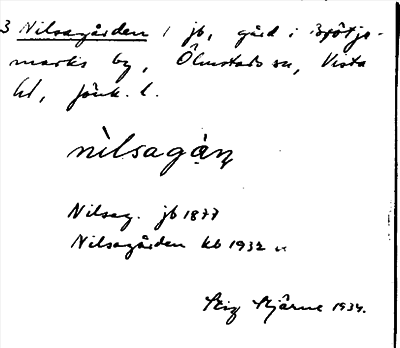 3 Nilsagården 1 jb, gård i Spötje-
marks by, Ölmstads sn, Vista
hd, Jönk. l.
nìlsagàṇ
Nilsag. jb 1877
Nilsagården kb 1932 u
Stig Stjärne 1934.